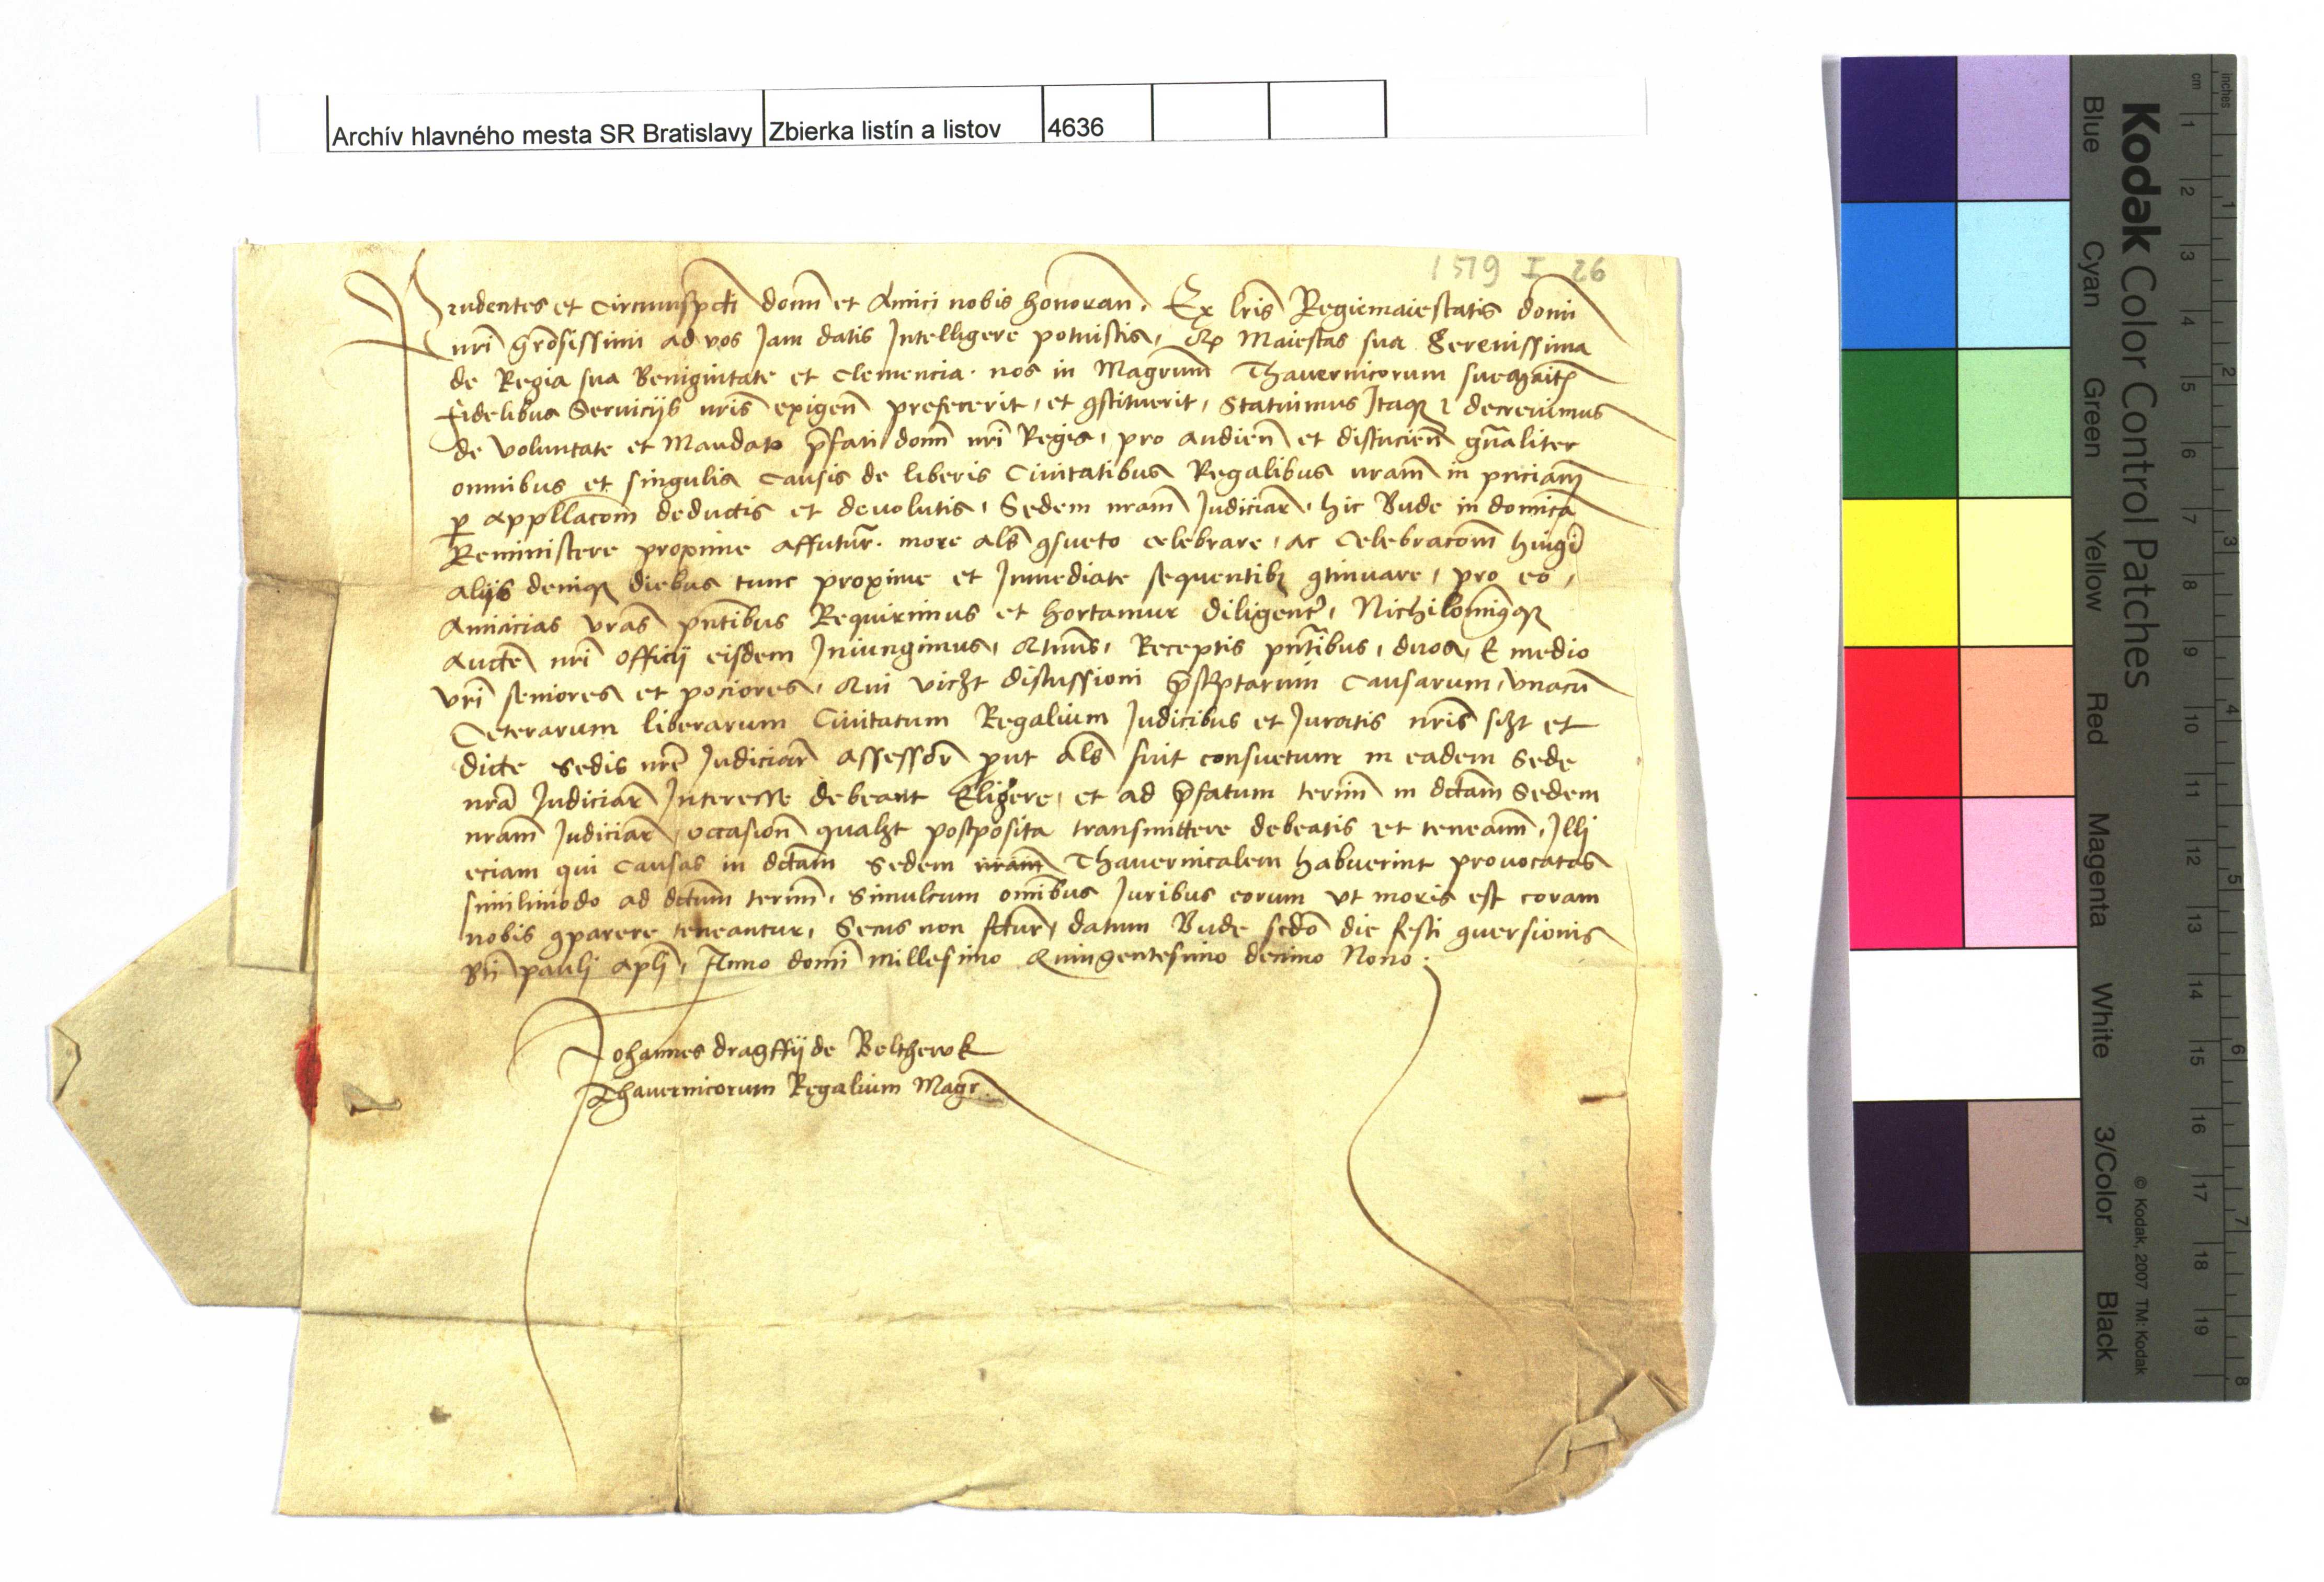 Archív hlavného mesta SR Bratislavy Zbierka listín a listov 4636
1519 I 26
Prudentes et Circumspcti domi et Amici nobis honoran. Ex lris Regiemaiestatis domi
nri grosissimi ad vos Jam datis Intelligere potuistis, Maiestas sua Serenissima
de Regia sua Benignitate et Clemencia. nos in Magrum Thavernicorum sue
fidelibus Servicijs nris exigen prefecerit, et constituerit, Statuimus Itaque decrevimus
de voluntate et Mandato prefati domi nri Regis, pro audien et discucien gnaliter
omnibus et singulis Causis de liberis Civitatibus Regalibus nram in pnciam
per appllacom deductis et devolutis, Sedem nram Judiciar, hic Bude in domica
Reministere proxime affutur. more als consueto celebrare, ac Celebracom
alijs denique diebus tunc proxime et Immediate sequentibus continuare, pro eo,
Amicicias vras pntibus Requirimus et hortamur diligenter, Nichilominusque
Aucte nri officij eisdem Iniungimus, Receptis pntibus, duos, E medio
vri seniores et pociores, Qui discussioni Causarum, vnacu
Ceterarum liberarum Civitatum Regalium Judicibus et Juratis nris et
dicte Sedis nre Judiciar assessor prout als fuit consuetum in eadem Sede
nra Judiciar Interesse debeant Eligere, et ad prefatum termi in dctam Sedem
nram Judiciar occasion postposita transmittere debeatis et teneami, Illi
eciam qui Causas in dctam Sedem nram Thavernicalem habuerint provocatas
similimodo ad dctum termi, Simulcum omibus Juribus eorum vt moris est coram
nobis comparere teneantur, Secus non fctur, datum Bude scdo die festi conversionis
Bti pauli apli, Anno domi millesimo Quingentesimo decimo Nono.
Johannes dragffij de Belthewk
Thavernicorum Regalium Magr.
Kodak Color Control Patches
Blue Cyan Green Yellow Red Magenta White 3/Color Black
© Kodak, 2007 TM: Kodak
inches 1 2 3 4 5 6 7 8
cm 1 2 3 4 5 6 7 8 9 10 11 12 13 14 15 16 17 18 19